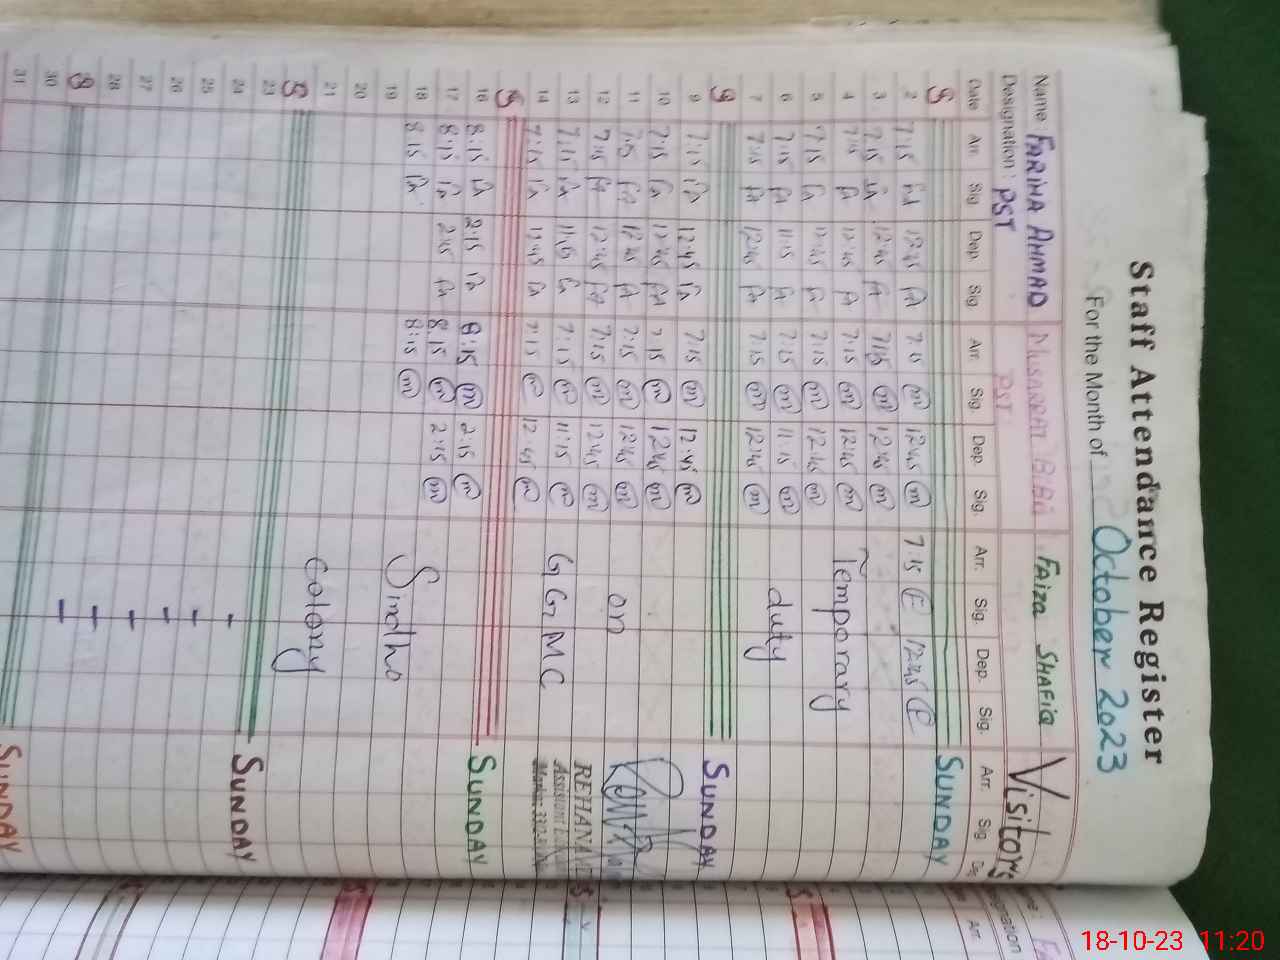 Staff Attendance Register
For the Month of October 2023
Name: FARIHA AHMAD MUSARRAT BIBI FAIZA SHAFIQ Visitors
Designation: PST PST
Date Arr. Sig Dep. Sig Arr. Sig. Dep. Sig. Arr. Sig. Dep. Sig. Arr. Sig
S SUNDAY
2 7:15 12:45 7:15 m 12:45 m 7:15 12:45
3 7:15 12:45 7:15 m 12:45 m
4 7:15 12:45 7:15 m 12:45 m Temporary
5 7:15 12:45 7:15 m 12:45 m
6 7:15 11:15 7:15 m 11:15 m duty
7 7:15 12:45 7:15 m 12:45 m
S SUNDAY
9 7:15 12:45 7:15 m 12:45 m
10 7:15 12:45 7:15 m 12:45 m
11 7:15 12:45 7:15 m 12:45 m on
12 7:15 12:45 7:15 m 12:45 m REHANA
13 7:15 11:15 7:15 m 11:15 m GGMC
14 7:15 12:45 7:15 m 12:45 m
S SUNDAY
16 8:15 2:15 8:15 m 2:15 m
17 8:15 2:15 8:15 m 2:15 m
18 8:15 8:15 m
19 Sindho
20
21 colony
S
23 SUNDAY
24
25
26
27
28
S
30
31 SUNDAY
18-10-23 11:20